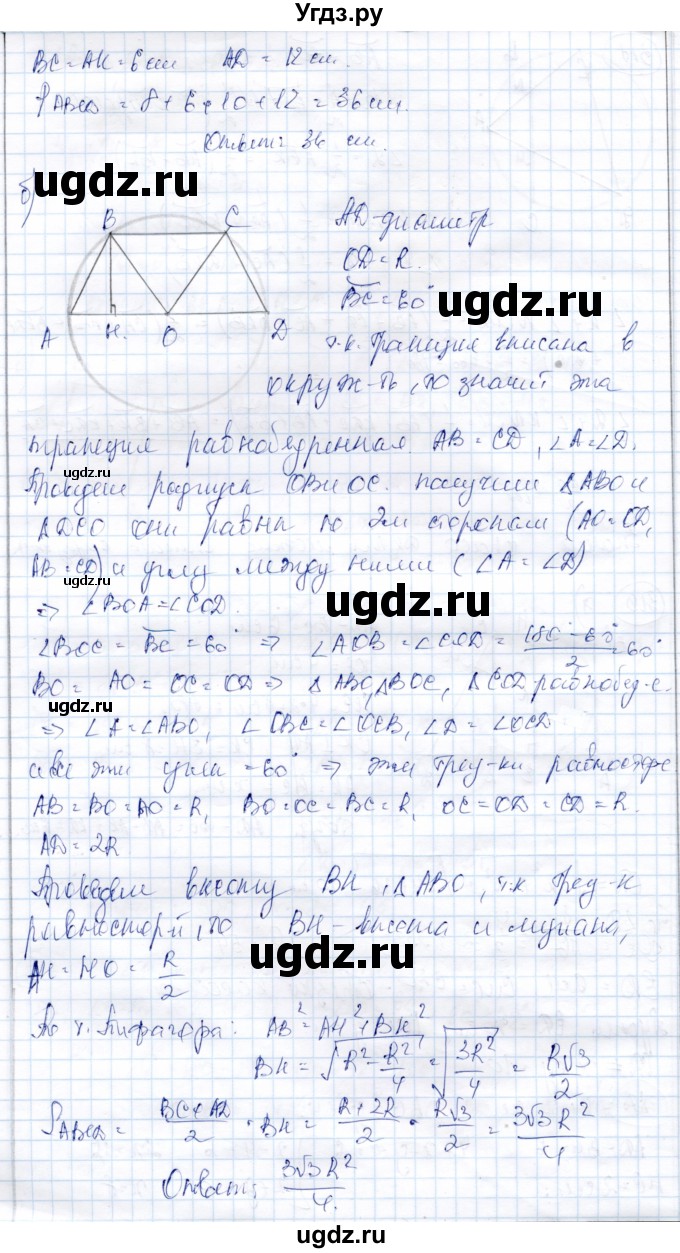 Угдз.ру
BC = AK = 6 см AD = 12 см.
P ABCD = 8 + 6 + 10 + 12 = 36 см.
Ответ: 36 см.
ugdz.ru
ugdz.ru
б)
B C
A H. O D
AD-диаметр
OD = R.
BC = 60°
ugdz.ru
т.к. трапеция вписана в
окруж-ть, то значит эта
трапеция равнобедренная. AB = CD, ∠A = ∠D.
ugdz.ru
Проведем радиусы OB и OC. получим ΔABO и
ΔDCO они равны по 2м сторонам (AO = OD,
AB = CD) и углу между ними (∠A = ∠D)
ugdz.ru
ugdz.ru
⇒ ∠BOA = ∠COD.
∠BOC = BC = 60° ⇒ ∠AOB = ∠COD = (180° - 60°)/2 = 60°
BO = AO = OC = OD ⇒ ΔABO, ΔBOC, ΔCOD равнобед-е.
ugdz.ru
⇒ ∠A = ∠ABO, ∠OBC = ∠OCB, ∠D = ∠OCD
и все эти углы = 60° ⇒ эти треу-ки равностор-е
AB = BO = AO = R, BO = OC = BC = R, OC = OD = CD = R.
ugdz.ru
AD = 2R
Проведем высоту BH, ΔABO, т.к. треу-к
равностор-й, то BH - высота и медиана,
ugdz.ru
AH = HO = R/2
По т. Пифагора: AB² = AH² + BH²
BH = √(R² - R²/4) = √(3R²/4) = R√3/2
S ABCD = (BC + AD)/2 · BH = (R + 2R)/2 · R√3/2 = 3√3R²/4
ugdz.ru
ugdz.ru
Ответ: 3√3R²/4.
ugdz.ru